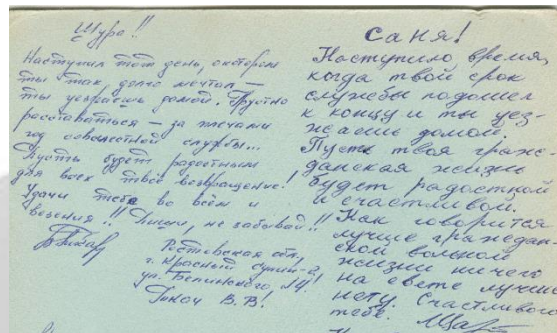 Шура!!
Наступил тот день, о котором
ты так долго мечтал —
ты уезжаешь домой. Грустно
расставаться — за плечами
год совместной службы...
Пусть будет радостным
для всех твоё возвращение!
Удачи тебе во всём и
везения!! Пиши, не забывай!!
Ростовская обл,
г. Красный Сулин-2,
ул. Белинского,
В. В!
Саня!
Наступило время,
когда твой срок
службы подошел
к концу и ты уез-
жаешь домой.
Пусть твоя граж-
данская жизнь
будет радостной
и счастливой.
Как говорится
лучше граждан-
ской вольной
жизни ничего
на свете лучше
нету. Счастливо
тебе.